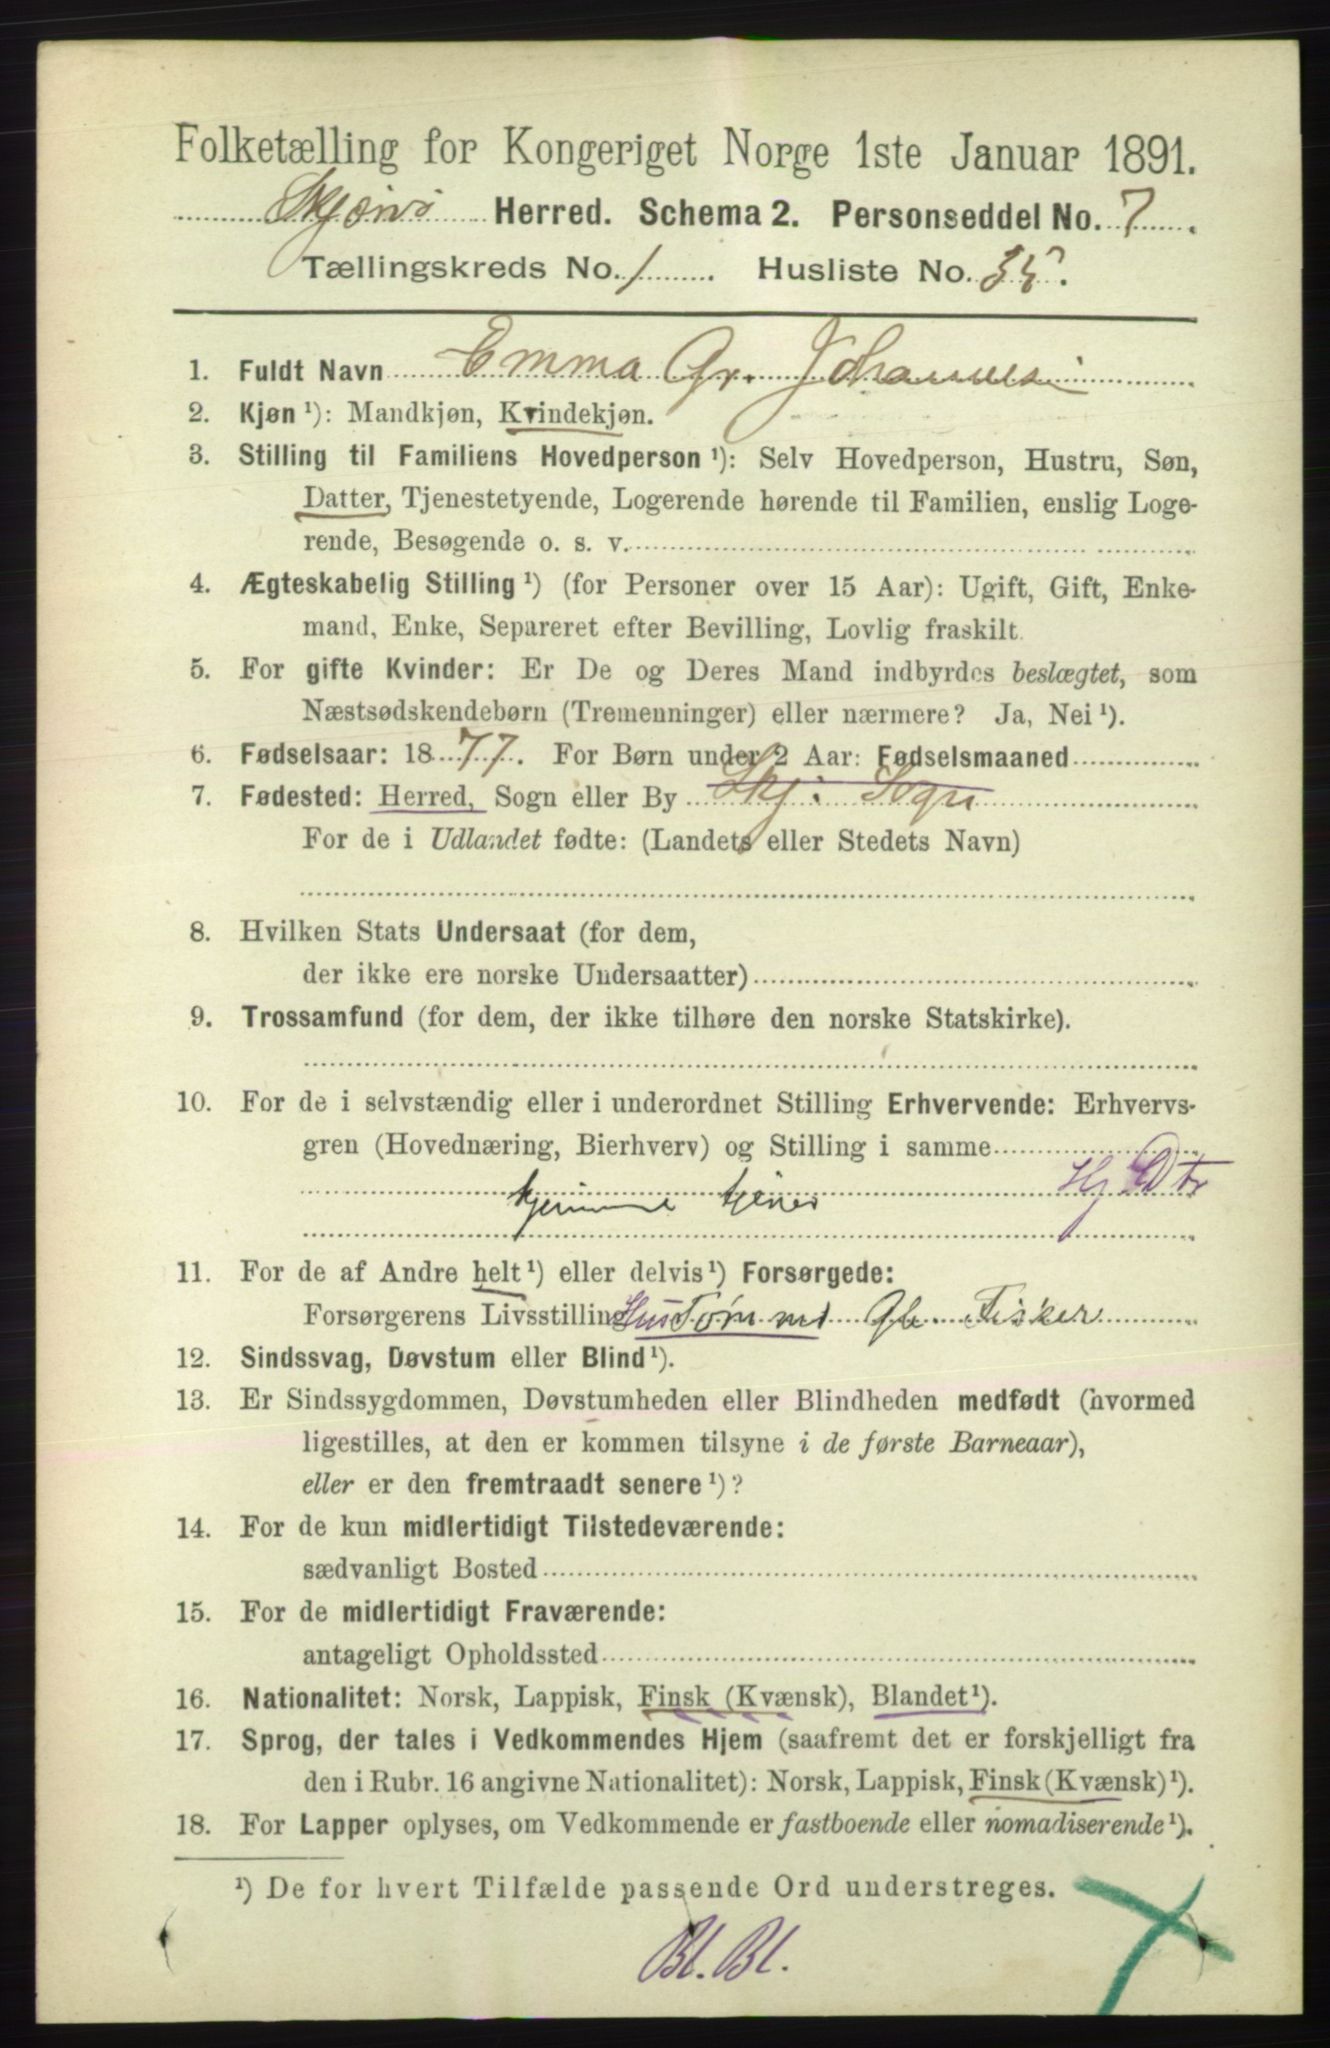 Folketælling for Kongeriget Norge 1ste Januar 1891.
Skjervø Herred. Schema 2. Personseddel No. 7.
Tællingskreds No. 1. Husliste No. 35.
1. Fuldt Navn Emma Gr. Johannes
2. Kjøn ¹): Mandkjøn, Kvindekjøn.
3. Stilling til Familiens Hovedperson ¹): Selv Hovedperson, Hustru, Søn,
Datter, Tjenestetyende, Logerende hørende til Familien, enslig Loge-
rende, Besøgende o. s. v.
4. Ægteskabelig Stilling ¹) (for Personer over 15 Aar): Ugift, Gift, Enke-
mand, Enke, Separeret efter Bevilling, Lovlig fraskilt.
5. For gifte Kvinder: Er De og Deres Mand indbyrdes beslægtet, som
Næstsødskendebørn (Tremenninger) eller nærmere? Ja, Nei ¹).
6. Fødselsaar: 1877. For Børn under 2 Aar: Fødselsmaaned
7. Fødested: Herred, Sogn eller By Skj. Sogn
For de i Udlandet fødte: (Landets eller Stedets Navn)
8. Hvilken Stats Undersaat (for dem,
der ikke ere norske Undersaatter)
9. Trossamfund (for dem, der ikke tilhøre den norske Statskirke).
10. For de i selvstændig eller i underordnet Stilling Erhvervende: Erhvervs-
gren (Hovednæring, Bierhverv) og Stilling i samme
hjemme tjener Hj Dtr
11. For de af Andre helt ¹) eller delvis ¹) Forsørgede:
Forsørgerens Livsstilling Fisker
12. Sindssvag, Døvstum eller Blind ¹).
13. Er Sindssygdommen, Døvstumheden eller Blindheden medfødt (hvormed
ligestilles, at den er kommen tilsyne i de første Barneaar),
eller er den fremtraadt senere ¹)?
14. For de kun midlertidigt Tilstedeværende:
sædvanligt Bosted
15. For de midlertidigt Fraværende:
antageligt Opholdssted
16. Nationalitet: Norsk, Lappisk, Finsk (Kvænsk), Blandet ¹).
17. Sprog, der tales i Vedkommendes Hjem (saafremt det er forskjelligt fra
den i Rubr. 16 angivne Nationalitet): Norsk, Lappisk, Finsk (Kvænsk) ¹).
18. For Lapper oplyses, om Vedkommende er fastboende eller nomadiserende ¹).
¹) De for hvert Tilfælde passende Ord understreges.
Bl. Bl.